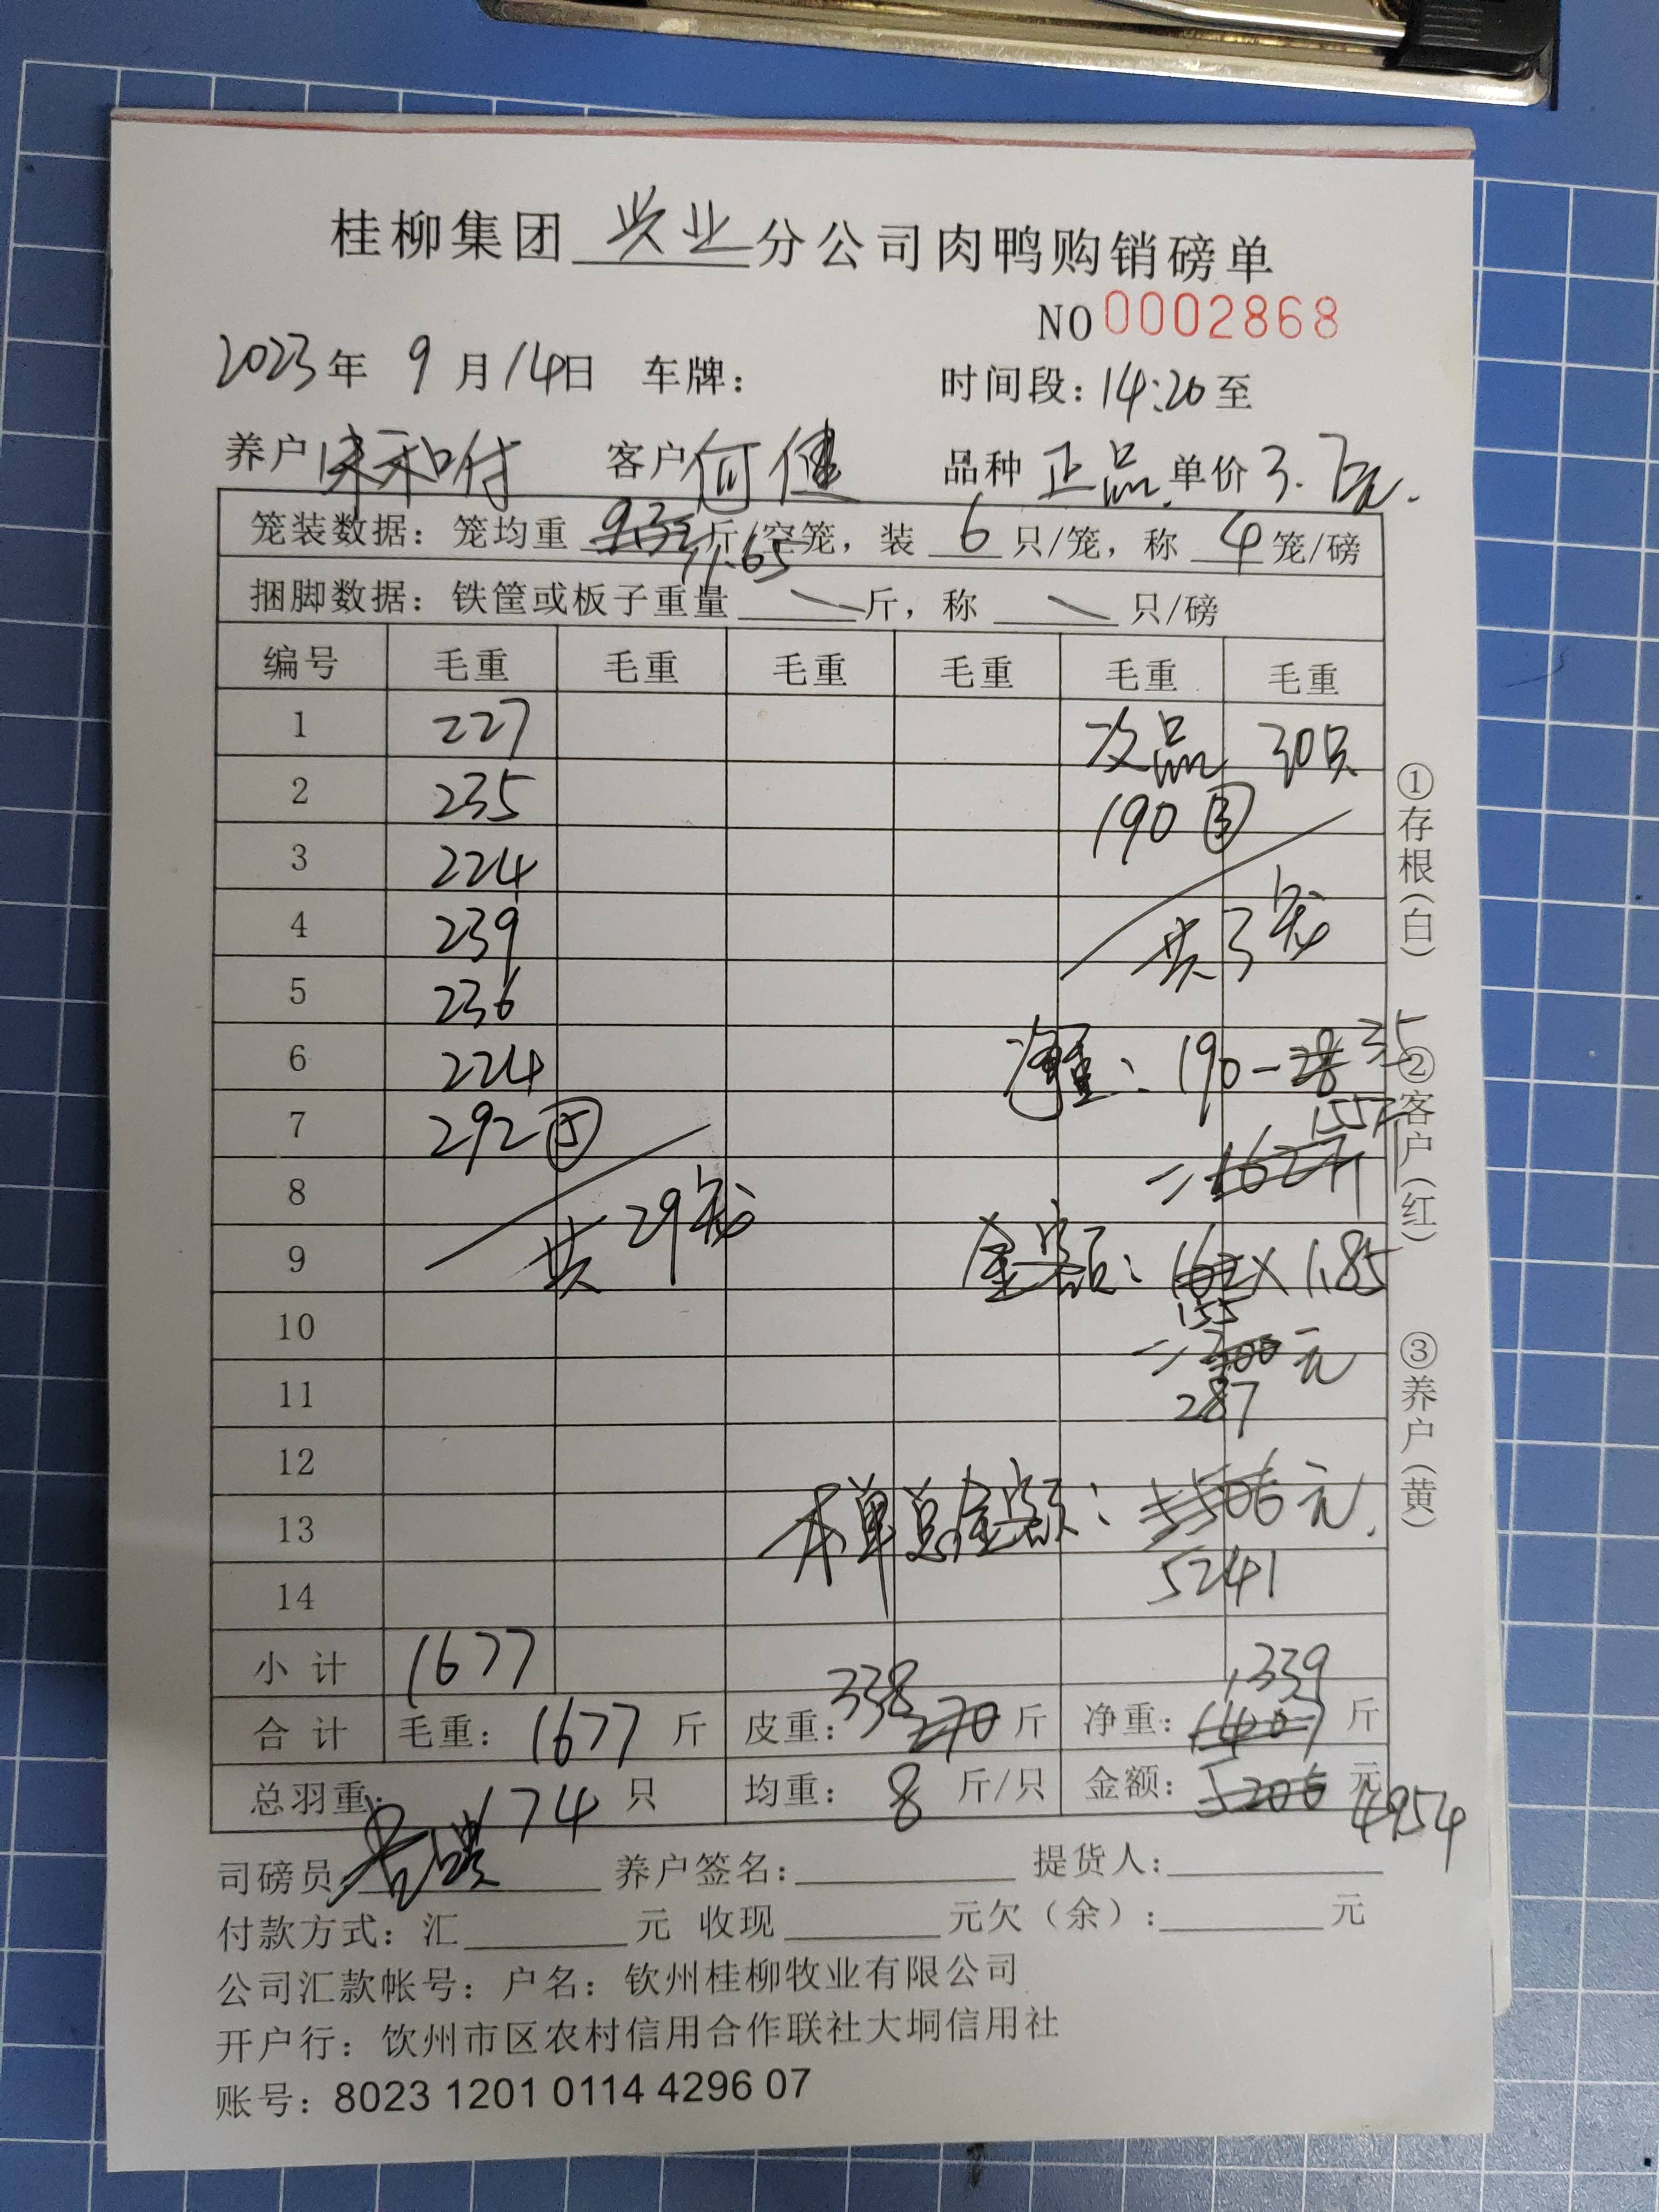 桂柳集团 兴业 分公司肉鸭购销磅单
NO 0002868
2023年 9月14日 车牌: 时间段: 14:20 至
养户 和付 客户 何健 品种 正品 单价 3.7元.
笼装数据: 笼均重 11.65 斤/空笼, 装 6 只/笼, 称 4 笼/磅
捆脚数据: 铁筐或板子重量 斤, 称 只/磅
编号 毛重 毛重 毛重 毛重 毛重 毛重
1 227 次品 30只
2 235 190 ③
3 224
4 239 共3笼
5 236
6 224 净重: 190-28 35
7 292 ⑤ 155斤
8 共29笼 =162斤
9 金额: 162×1.85
155
10 =300元
11 287
12
13 本单总金额: 5506元.
14 5241
小计 1677
合计 毛重: 1677 斤 皮重: 338 270 斤 净重: 1339 1407 斤
总羽重: 174 只 均重: 8 斤/只 金额: 5206 元 4954
司磅员 养户签名: 提货人:
付款方式: 汇 元 收现 元欠(余): 元
公司汇款帐号: 户名: 钦州桂柳牧业有限公司
开户行: 钦州市区农村信用合作联社大垌信用社
账号: 8023 1201 0114 4296 07
①存根(白) ②客户(红) ③养户(黄)